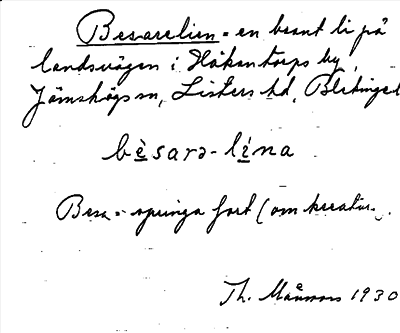 Besarelien = en brant li på
landsvägen i Håkantorps by,
Jämshögs sn, Listers hd, Blekinge
bèsarə-lína
Besa = springa fort (om kreatur.
Th. Månsson 1930